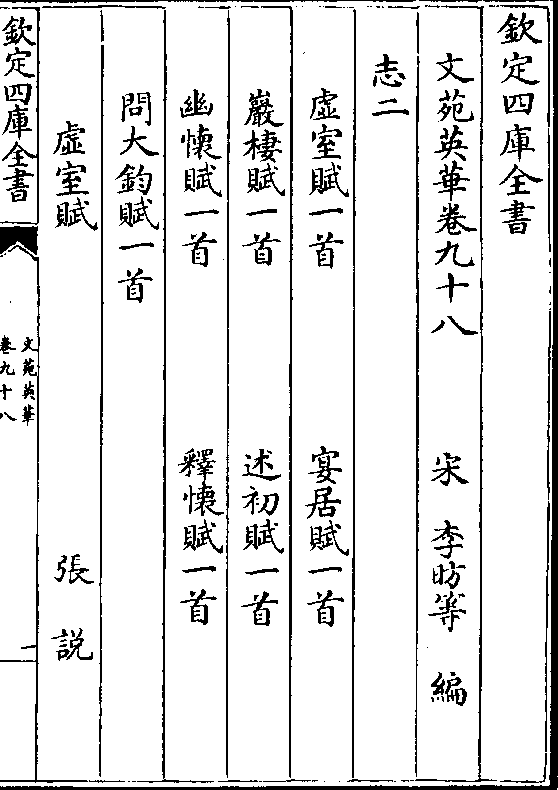 欽定四庫全書
文苑英華卷九十八
宋 李昉等 編
志二
虛室賦一首 宴居賦一首
巖棲賦一首 述初賦一首
幽懷賦一首 釋懷賦一首
問大鈞賦一首
虛室賦 張說
欽定四庫全書
文苑英華
卷九十八
一